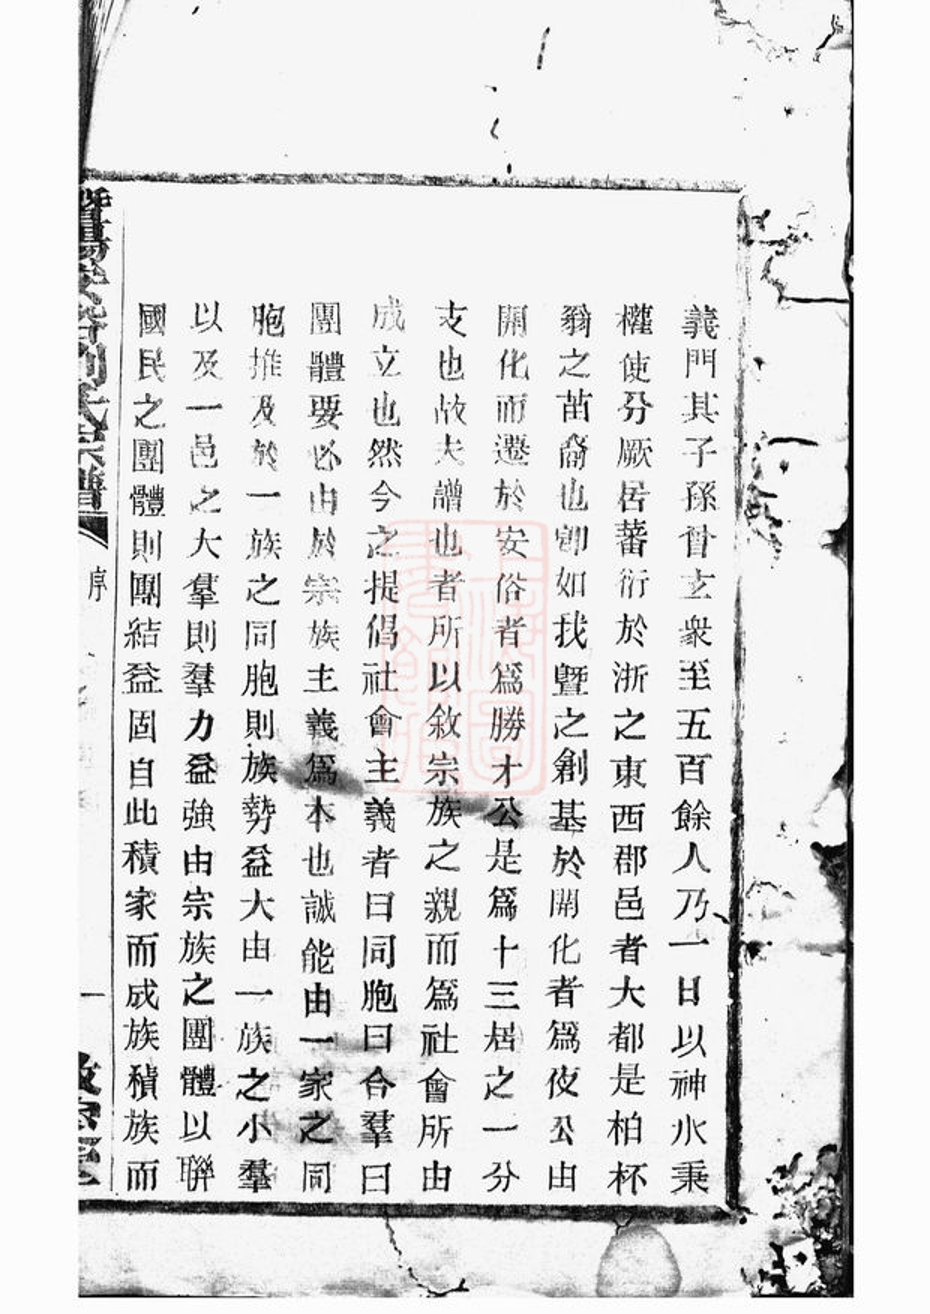 義門其子孫曾玄衆至五百餘人乃一日以神水秉
權使分厥居蕃衍於浙之東西郡邑者大都是柏杯
翁之苗裔也卽如我曁之創基於開化者爲夜公由
開化而遷於安俗者爲勝才公是爲十三居之一分
支也故夫譜也者所以敘宗族之親而爲社會所由
成立也然今之提倡社會主義者曰同胞曰合羣曰
團體要必由於宗族主義爲本也誠能由一家之同
胞推及於一族之同胞則族勢益大由一族之小羣
以及一邑之大羣則羣力益強由宗族之團體以聯
國民之團體則團結益固自此積家而成族積族而
曁陽安俗劉氏宗譜
序
一